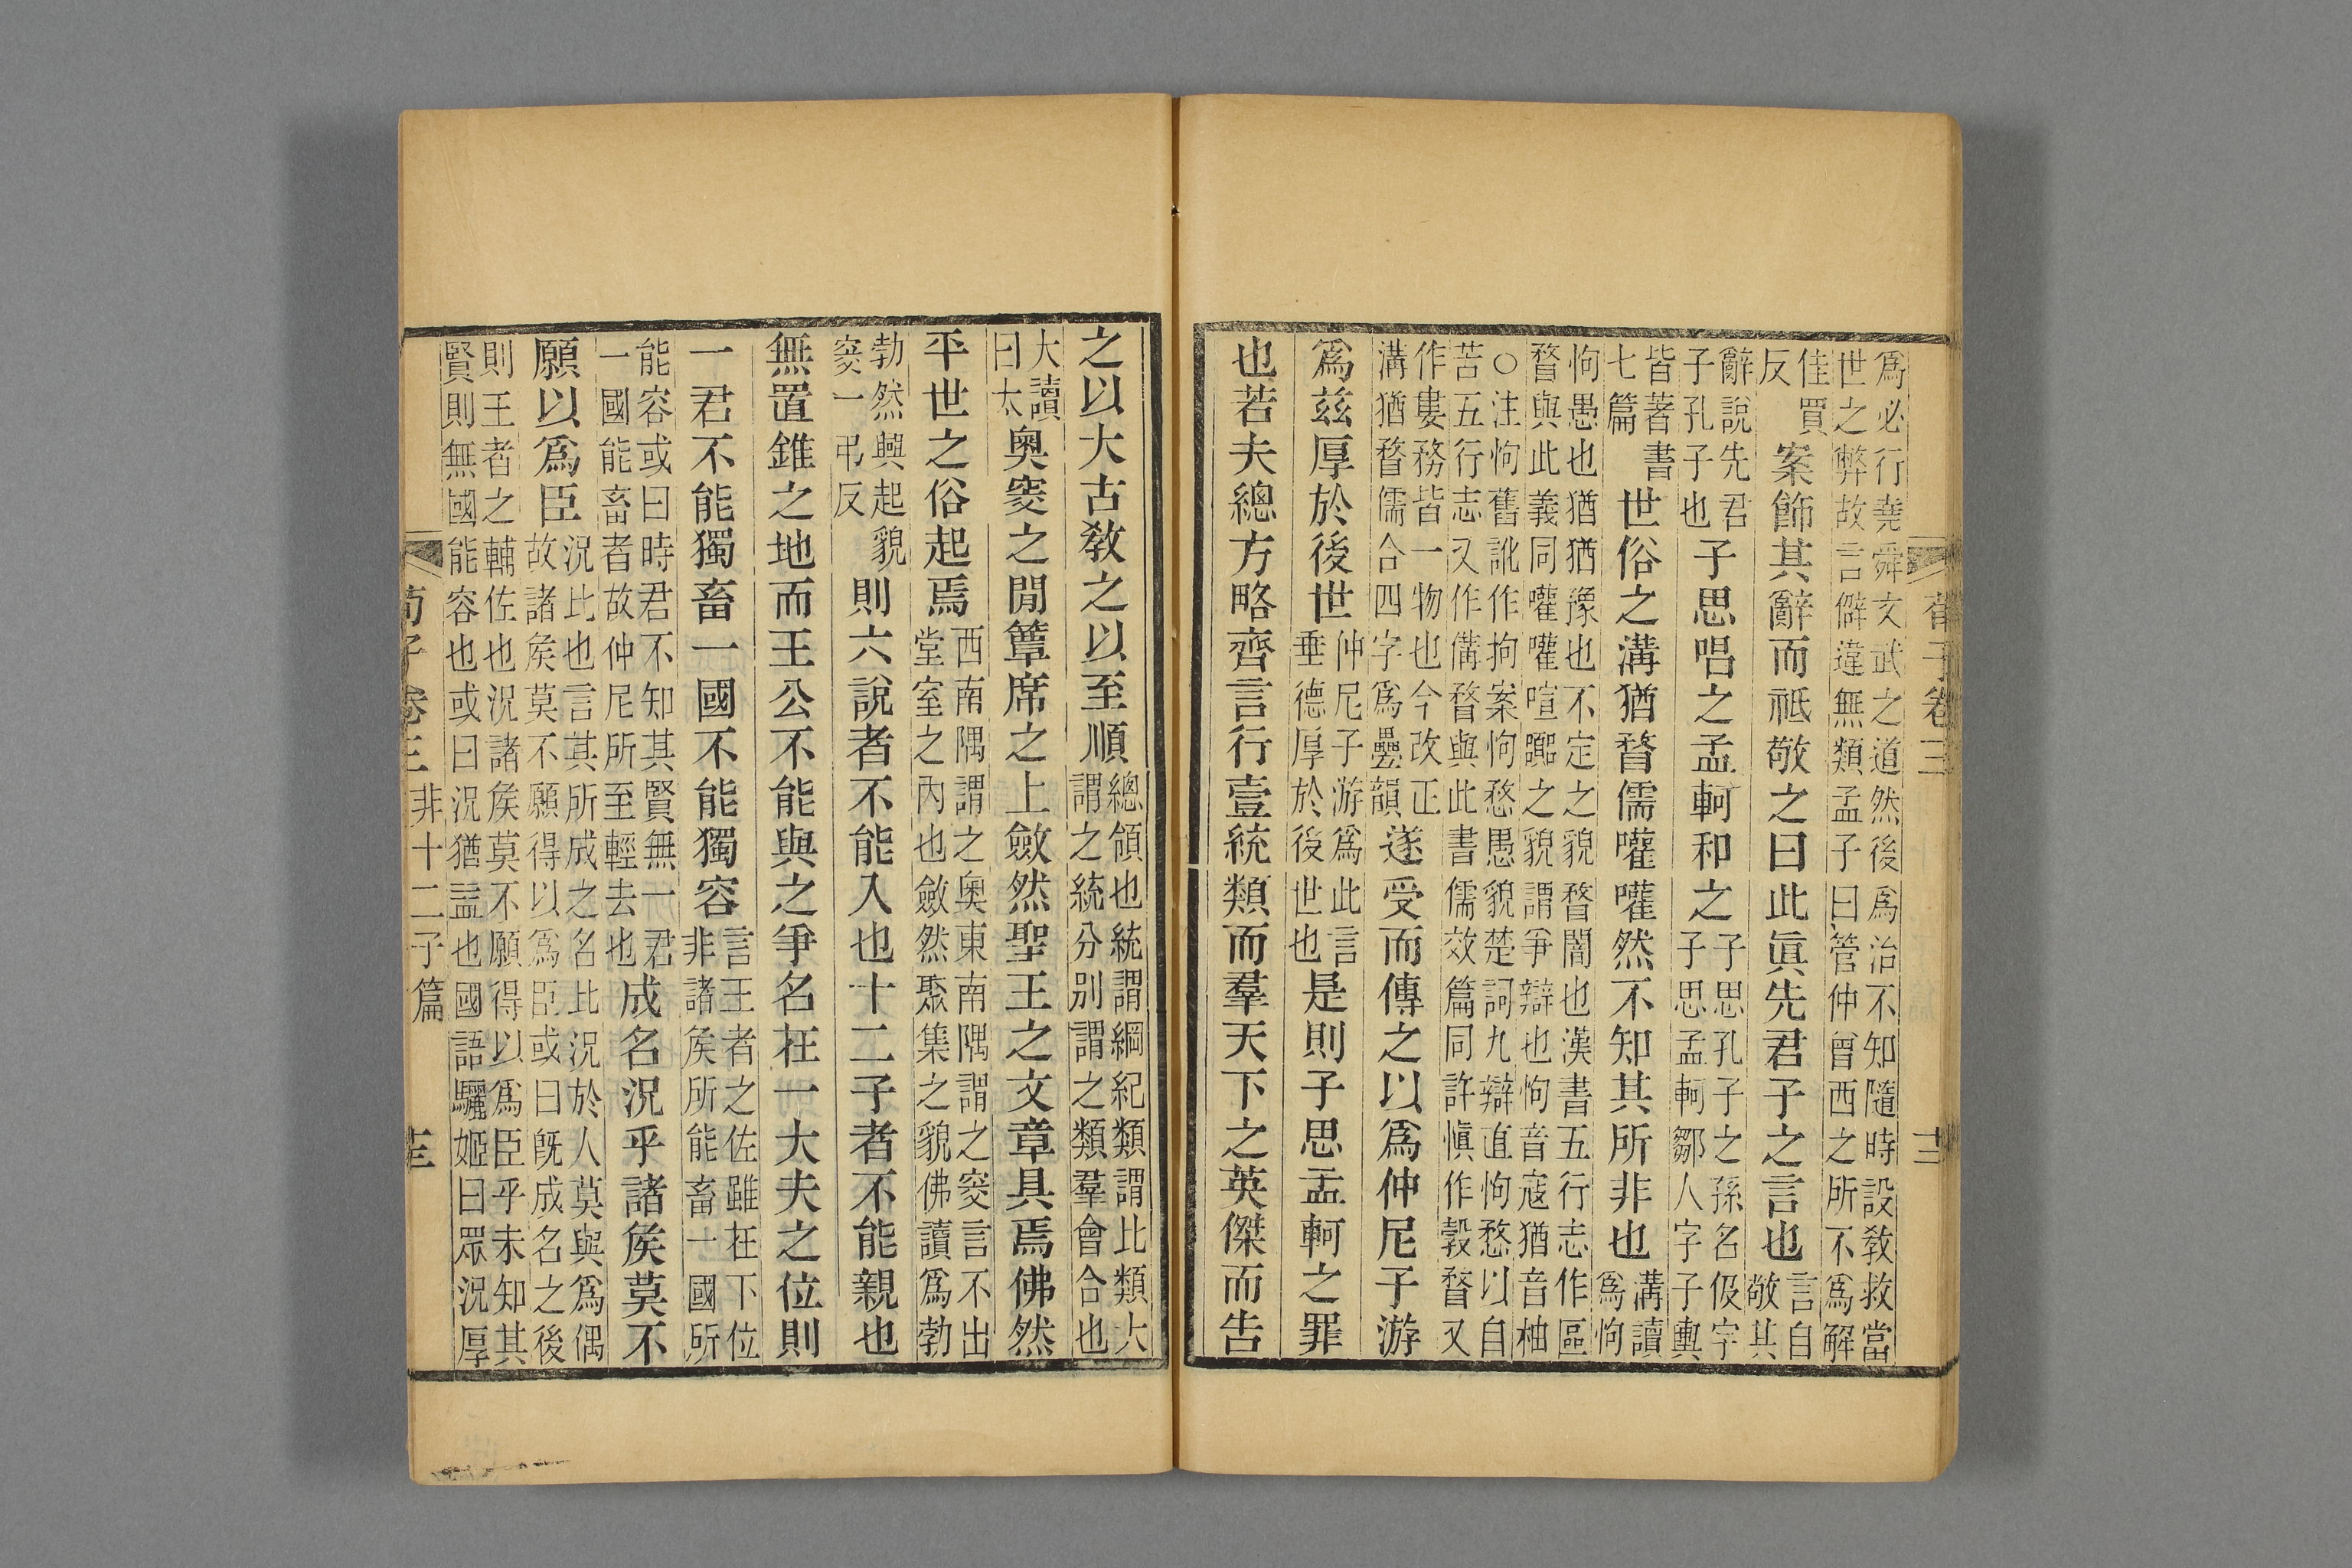 荀子卷三
十二
爲必行堯舜文武之道然後爲治不知隨時設敎救當
世之弊故言僻違無類孟子曰管仲曾西之所不爲解
佳買
反
案飾其辭而祗敬之曰此眞先君子之言也
言自
敬其
辭說先君
子孔子也
子思唱之孟軻和之
子思孔子之孫名伋字
子思孟軻鄒人字子輿
皆著書
七篇
世俗之溝猶瞀儒嚾嚾然不知其所非也
溝讀
爲怐
怐愚也猶猶豫也不定之貌瞀闇也漢書五行志作區
瞀與此義同嚾嚾喧囂之貌謂爭辯也怐音寇猶音柚
○注怐舊訛作拘案怐愗愚貌楚詞九辯直怐愗以自
苦五行志又作傋瞀與此書儒效篇同許愼作㝅瞀又
作婁務皆一物也今改正
溝猶瞀儒合四字爲疊韻
遂受而傳之以爲仲尼子游
爲茲厚於後世
仲尼子游爲此言
垂德厚於後世也
是則子思孟軻之罪
也若夫總方略齊言行壹統類而羣天下之英傑而告
之以大古敎之以至順
總領也統謂綱紀類謂比類大
謂之統分別謂之類羣會合也
大讀
曰太
奧窔之閒簟席之上斂然聖王之文章具焉佛然
平世之俗起焉
西南隅謂之奧東南隅謂之窔言不出
堂室之內也斂然聚集之貌佛讀爲勃
勃然興起貌
窔一弔反
則六說者不能入也十二子者不能親也
無置錐之地而王公不能與之爭名在一大夫之位則
一君不能獨畜一國不能獨容
言王者之佐雖在下位
非諸矦所能畜一國所
能容或曰時君不知其賢無一君
一國能畜者故仲尼所至輕去也
成名況乎諸矦莫不
願以爲臣
況比也言其所成之名比況於人莫與爲偶
故諸矦莫不願得以爲臣或曰旣成名之後
則王者之輔佐也況諸矦莫不願得以爲臣乎未知其
賢則無國能容也或曰況猶益也國語驪姬曰眾況厚
荀子卷三
非十二子篇
十三